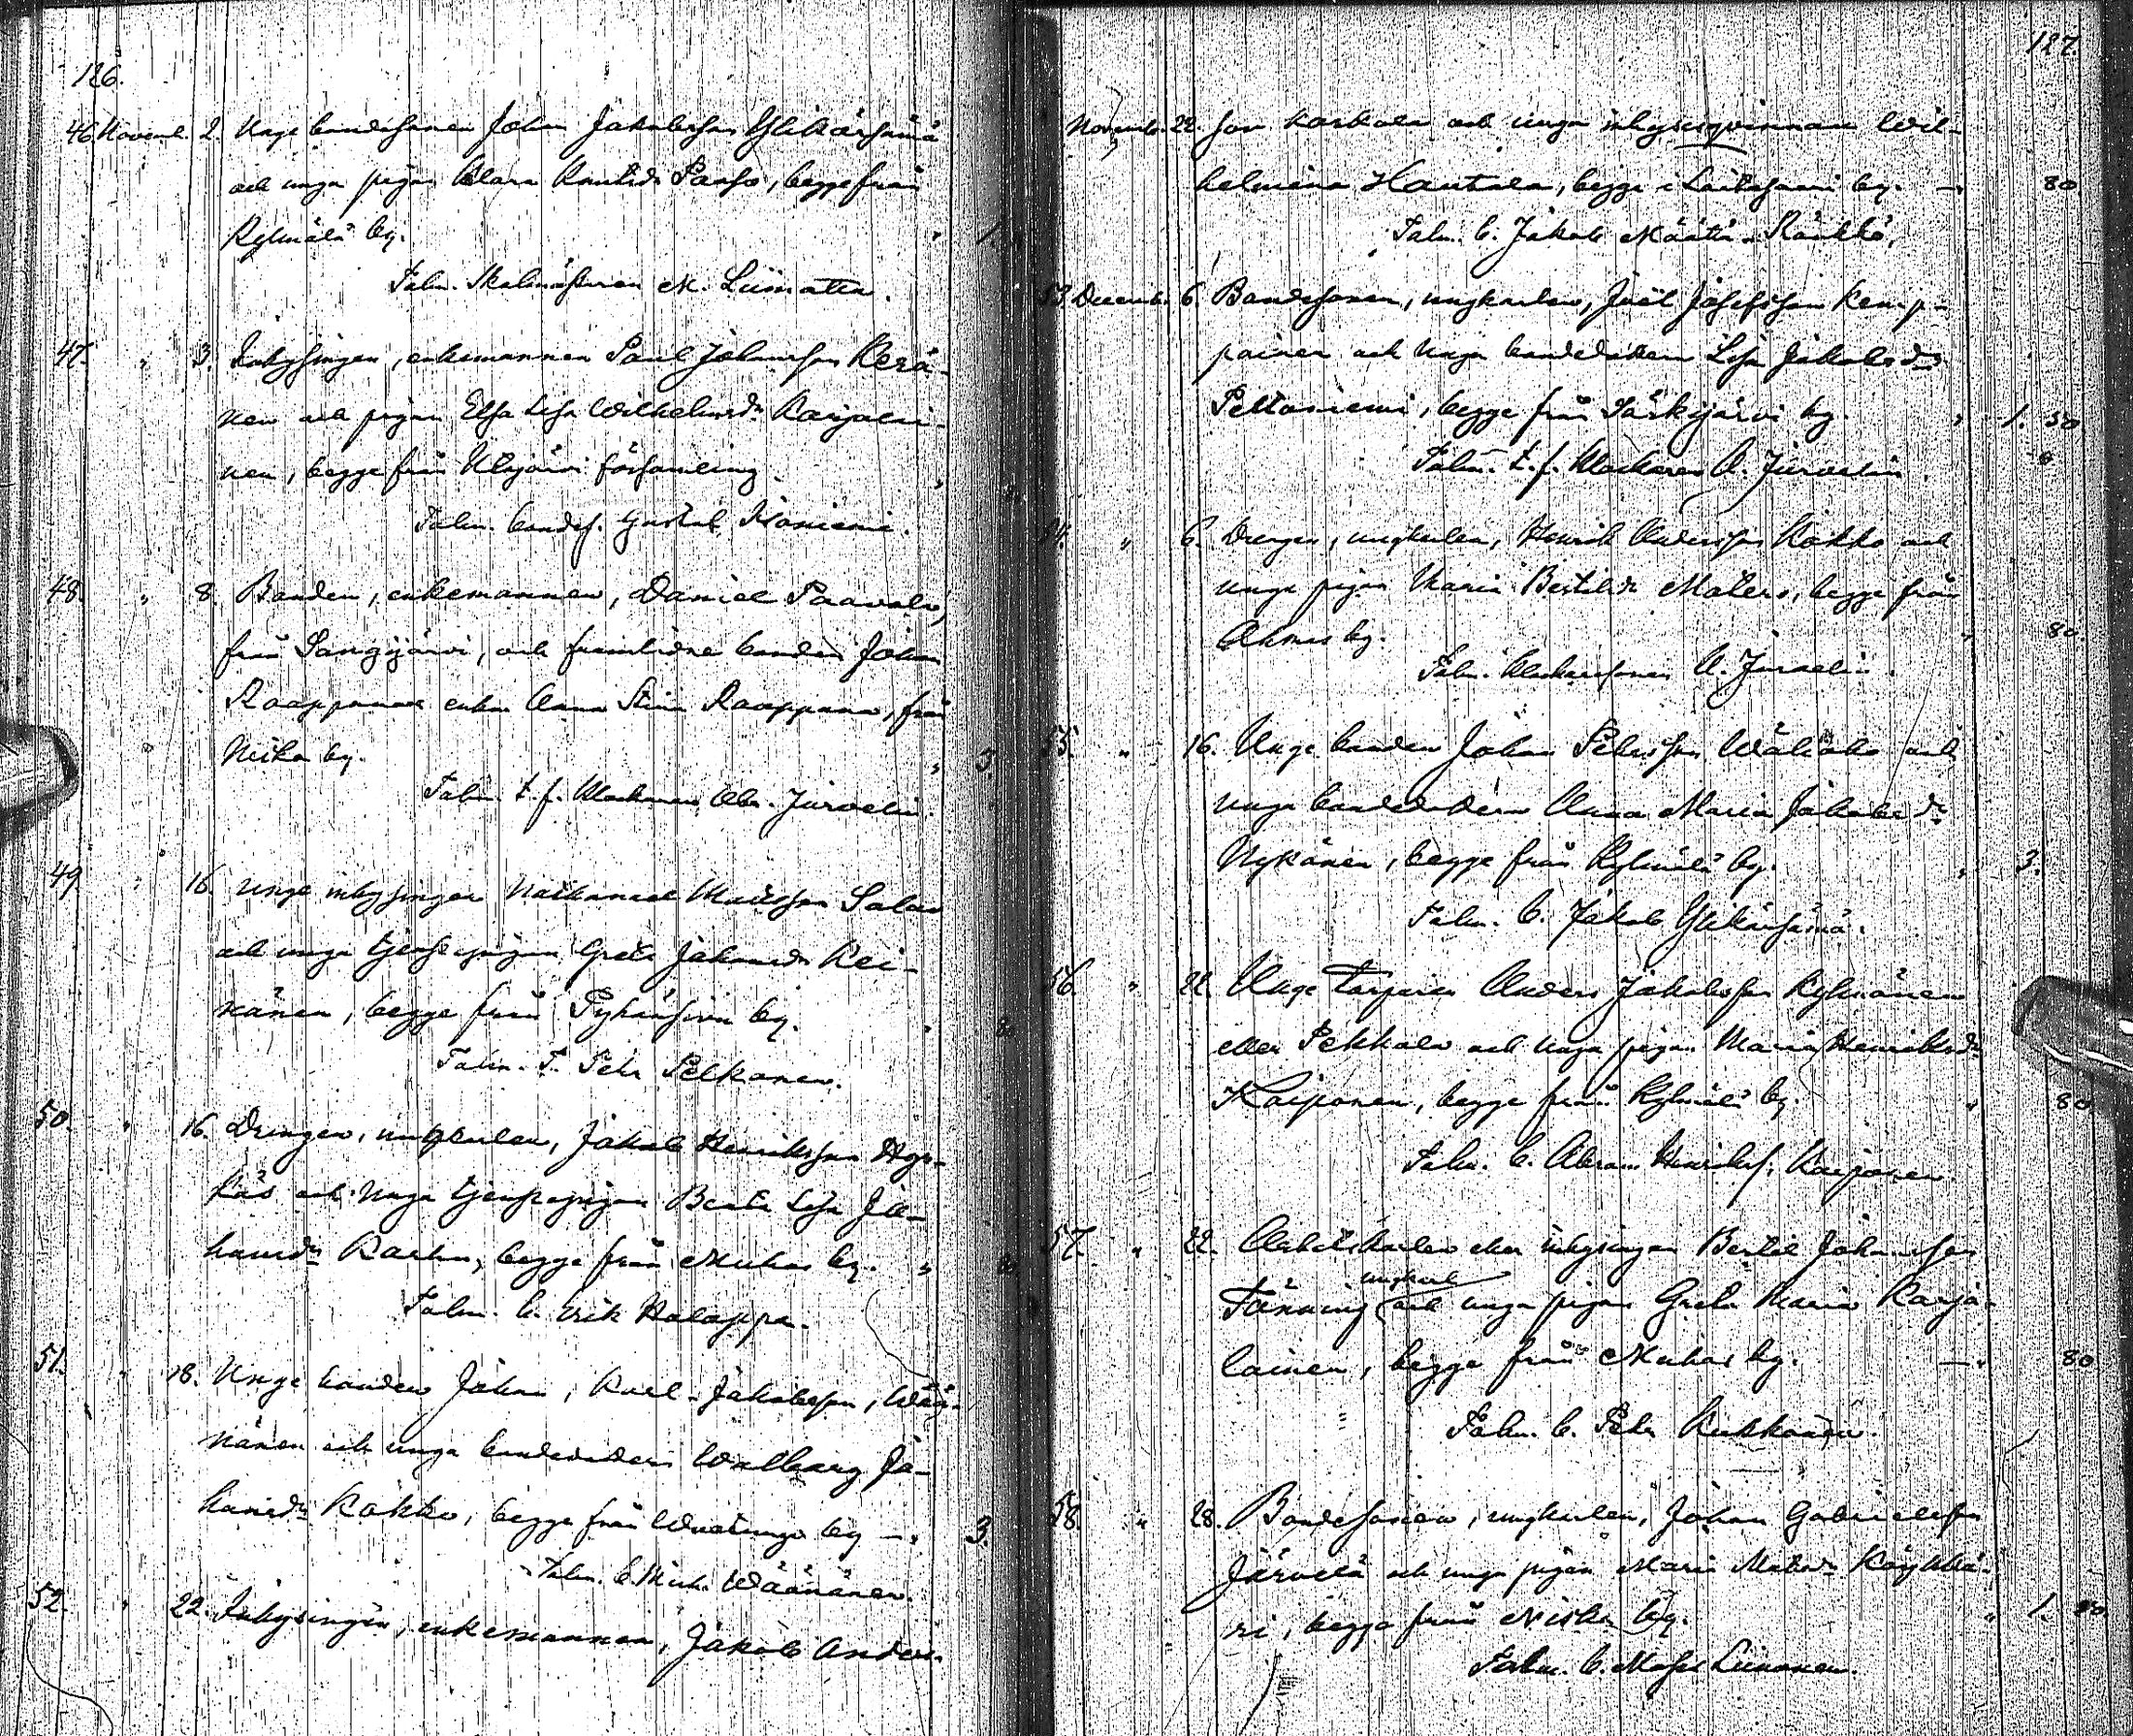 126.
46. Novemb. 2. Unge bondesonen Johan Jakobsson Ylikärsämä
och unga pigan Clara Knutsdr Paaso, begge från
Kylmälä by. " 1.
Talm. Skolmästaren M. Liimatta.
47. " 3. Inhysingen, enkemannen Paul Johansson Kerä-
nen och pigan Elsa Lisa Wilhelmsdr Karjalai-
nen, begge från Utajärvi församling "
Talm. bondes. Gustaf Kosioniemi.
48. " 8. Bonden, enkemannen, Daniel Paavola,
från Sangijärvi, och framlidne bonden Johan
Raappanas enka Anna Stina Raappana, från
Niska by. " 3.
Talm. t. f. Klockaren Abr. Jurvelin.
49. " 16. Unge inhysingen Nathanael Mattsson Salao
och unga tjenstepigan Greta Johansdr Kei-
nänen, begge från Pyhänsivu by. " 80
Talm. T. Pehr Pelkonen.
50. " 16. Drengen, ungkarlen, Jakob Henriksson
och unga tjenstepigan Beata Lisa Jo-
hansdr , begge från Muhos by. " 80
Talm. b. Erik Halappa.
51. " 18. Unge bonden Johan, Karl-Jakobsson, Wää-
nänen och unga bondedottern Walborg Jo-
hansdr Kokko, begge från by — " 3.
Talm. b. Mich. Wäänänen.
52. " 22. Inhysingen, enkemannen, Jakob Anders-
127.
Novemb. 22. son Korkala och unga inhysesqvinnan Wil-
helmina Hautala, begge i Laitasaari by. — " 80
Talm. b. Jakob Määttä-Ränkkö.
53. Decemb. 6. Bondesonen, ungkarlen, Joel Josefsson Kemp-
painen och unga bondedottern Lisa Jakobsdr
Peltoniemi, begge från Särkijärvi by. " 1. 50
Talm. t. f. Klockaren A. Jurvelin
54. " 6. Drengen, ungkarlen, Henrik Andersson Kokko och
unga pigan Maria Bertilsdr Matero, begge från
Ahmas by. " 80
Talm. Klockaresonen A. Jurvelin.
55. " 16. Unge bonden Johan Pehrsson Wäliaho och
unga bondedottern Anna Maria Jakobsdr
Nykänen, begge från Kylmälä by. " 3.
Talm. b. Jakob Ylikärsämä.
56. " 22. Unge Torparen Anders Jakobsson Kylmänen
eller Pekkala och unga pigan Maria Henriksdr
Kaiponen, begge från Kylmälä by. " 80
Talm. b. Abram Henrikss. Kaiponen
57. " 22. Arbetskarlen eller inhysingen Bertil Johansson
ungkarl
Tönning och unga pigan Greta Maria Karja-
lainen, begge från Muhos by. — " 80
Talm. b. Pehr Kukkonen.
58. " 28. Bondesonen, ungkarlen, Johan Gabrielsson
Järvelä och unga pigan Maria Matsdr Käyhkä-
ri, begge från Niska by. " 1. 80
Talm. b. Moses Liinanen.